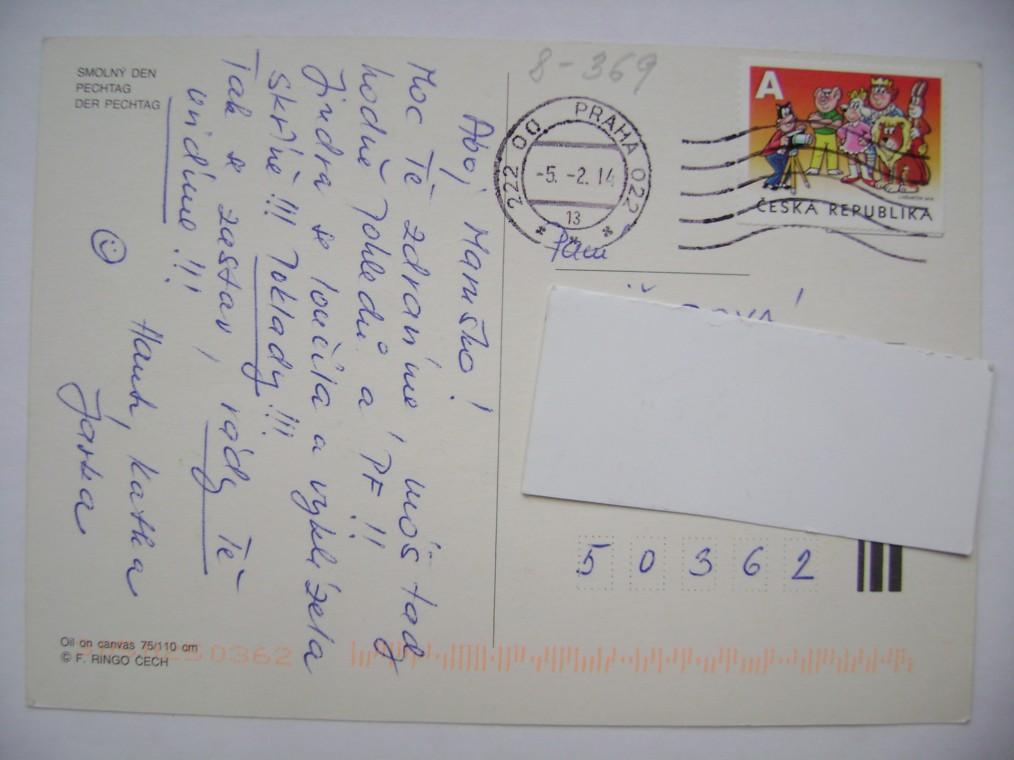 SMOLNÝ DEN
PECHTAG
DER PECHTAG
Ahoj Maruško!
Moc Tě zdravíme, máš tady
hodně Pohledů a PF!!
Jindra se loučila a vyklízela
skříně!!! Poklady!!!
Tak se zastav, rády Tě
uvidíme!!
Hanh, Katka
Jarka
Oil on canvas 75/110 cm
© F. RINGO ČECH
8-369
222 00 PRAHA 022
-5. -2. 14
13
A
ČESKÁ REPUBLIKA
Paní
5 0 3 6 2
50362